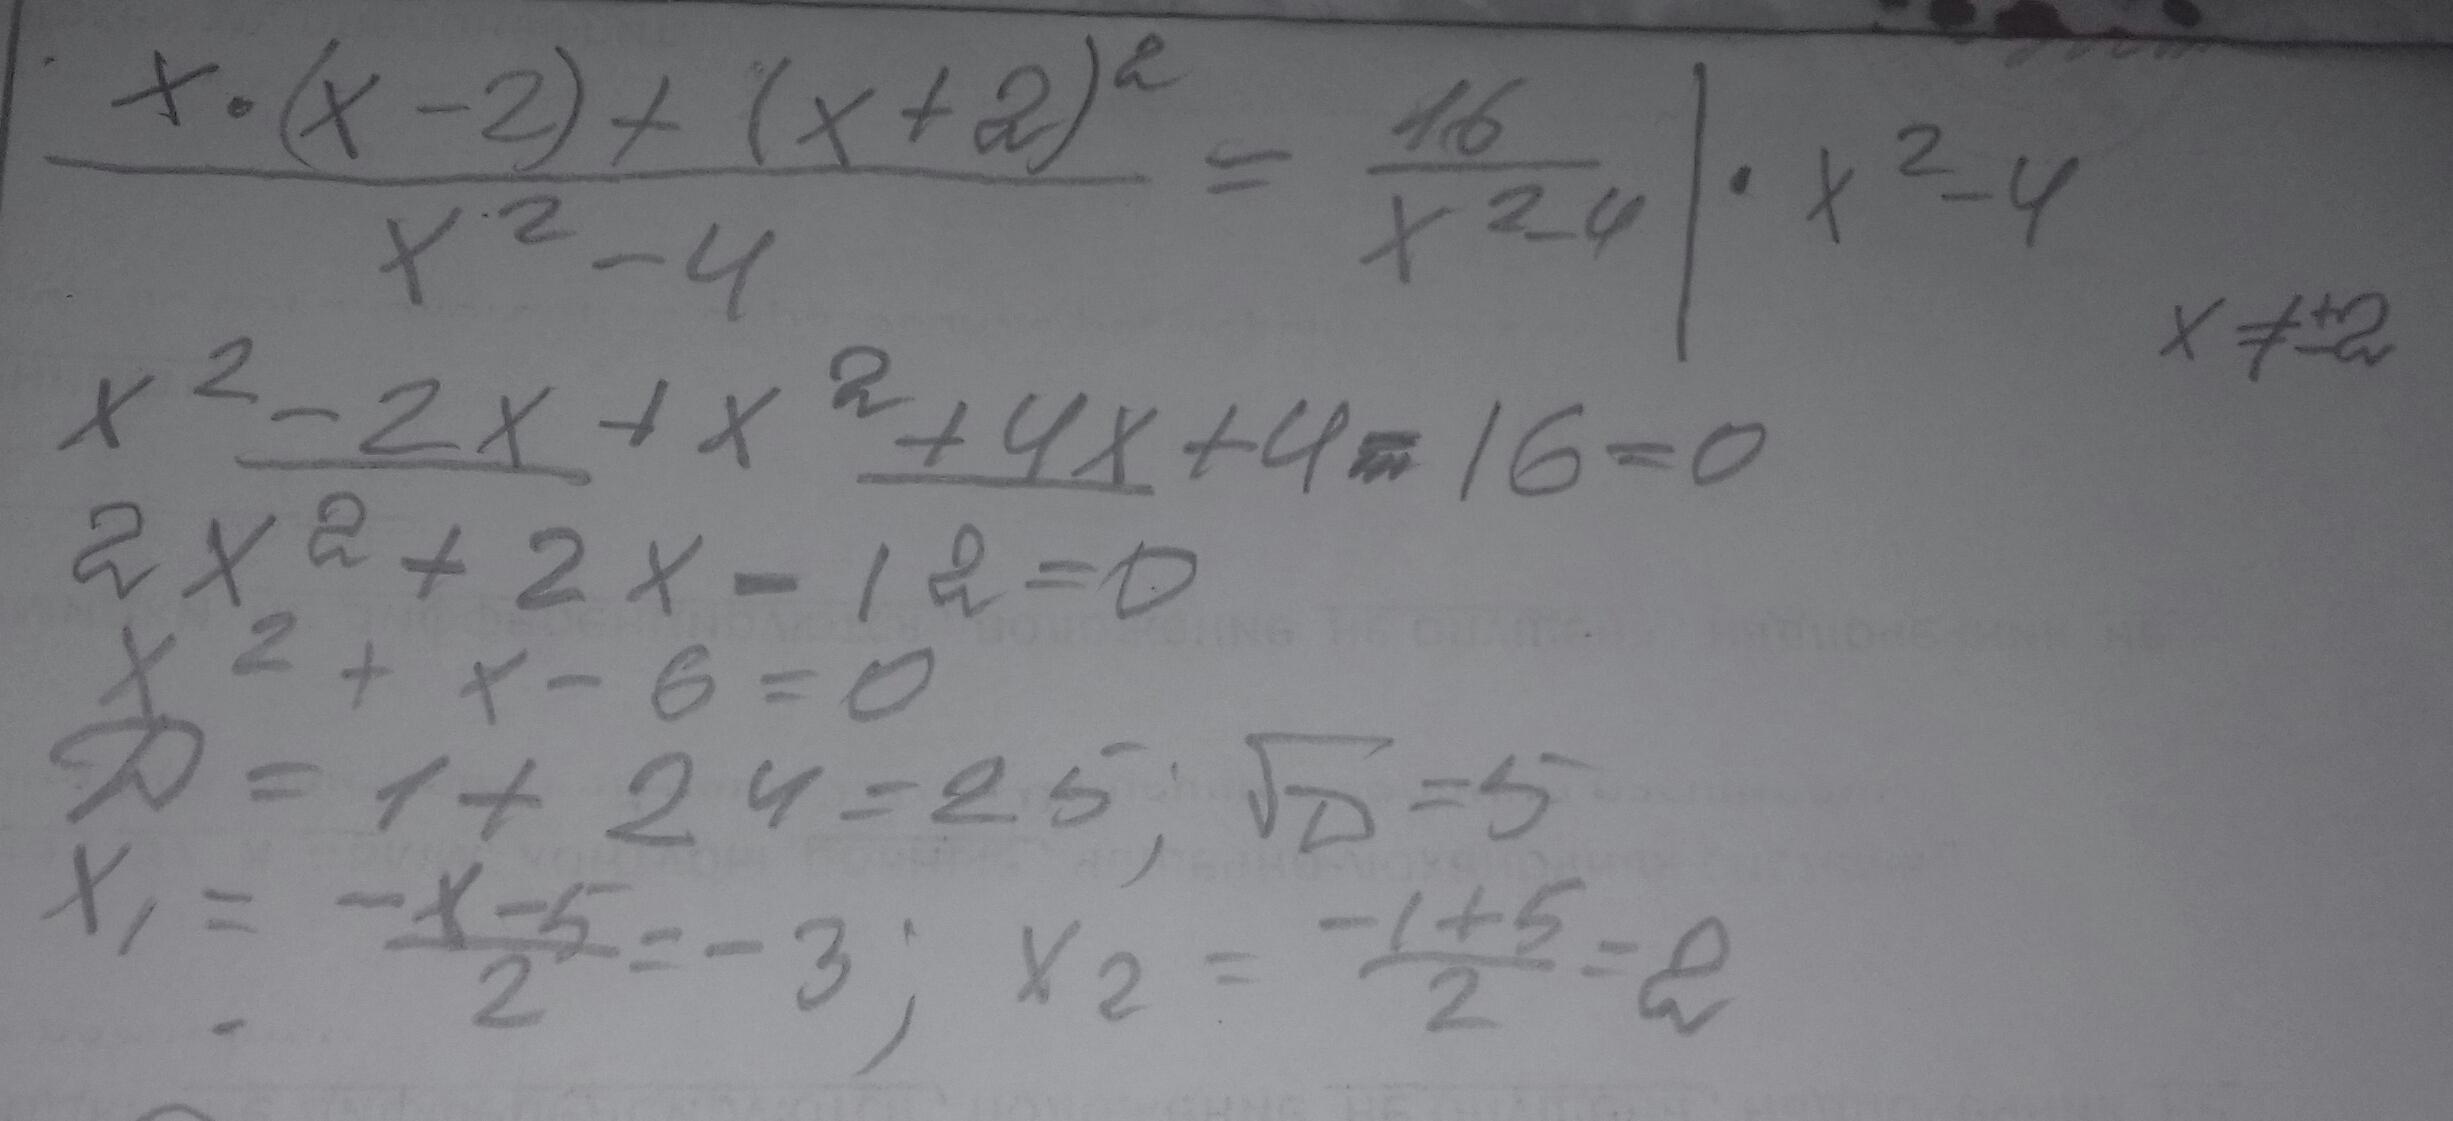 x·(x-2)+(x+2)²/x²-4 = 16/x²-4 | · x²-4
x≠±2
x²-2x+x²+4x+4-16=0
2x²+2x-12=0
x²+x-6=0
D=1+24=25; √D=5
x₁=-x-5/2=-3; x₂=-1+5/2=2